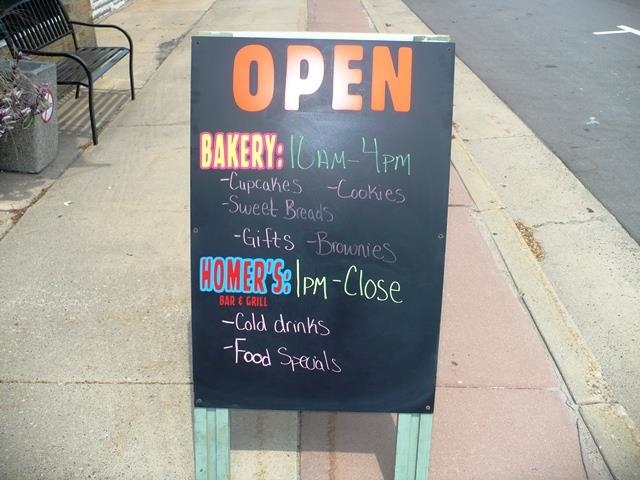 OPEN
BAKERY: 10AM-4PM
-Cupcakes -Cookies
-Sweet Breads
-Gifts -Brownies
HOMER'S: 1PM-Close
BAR & GRILL
-Cold drinks
-Food Specials